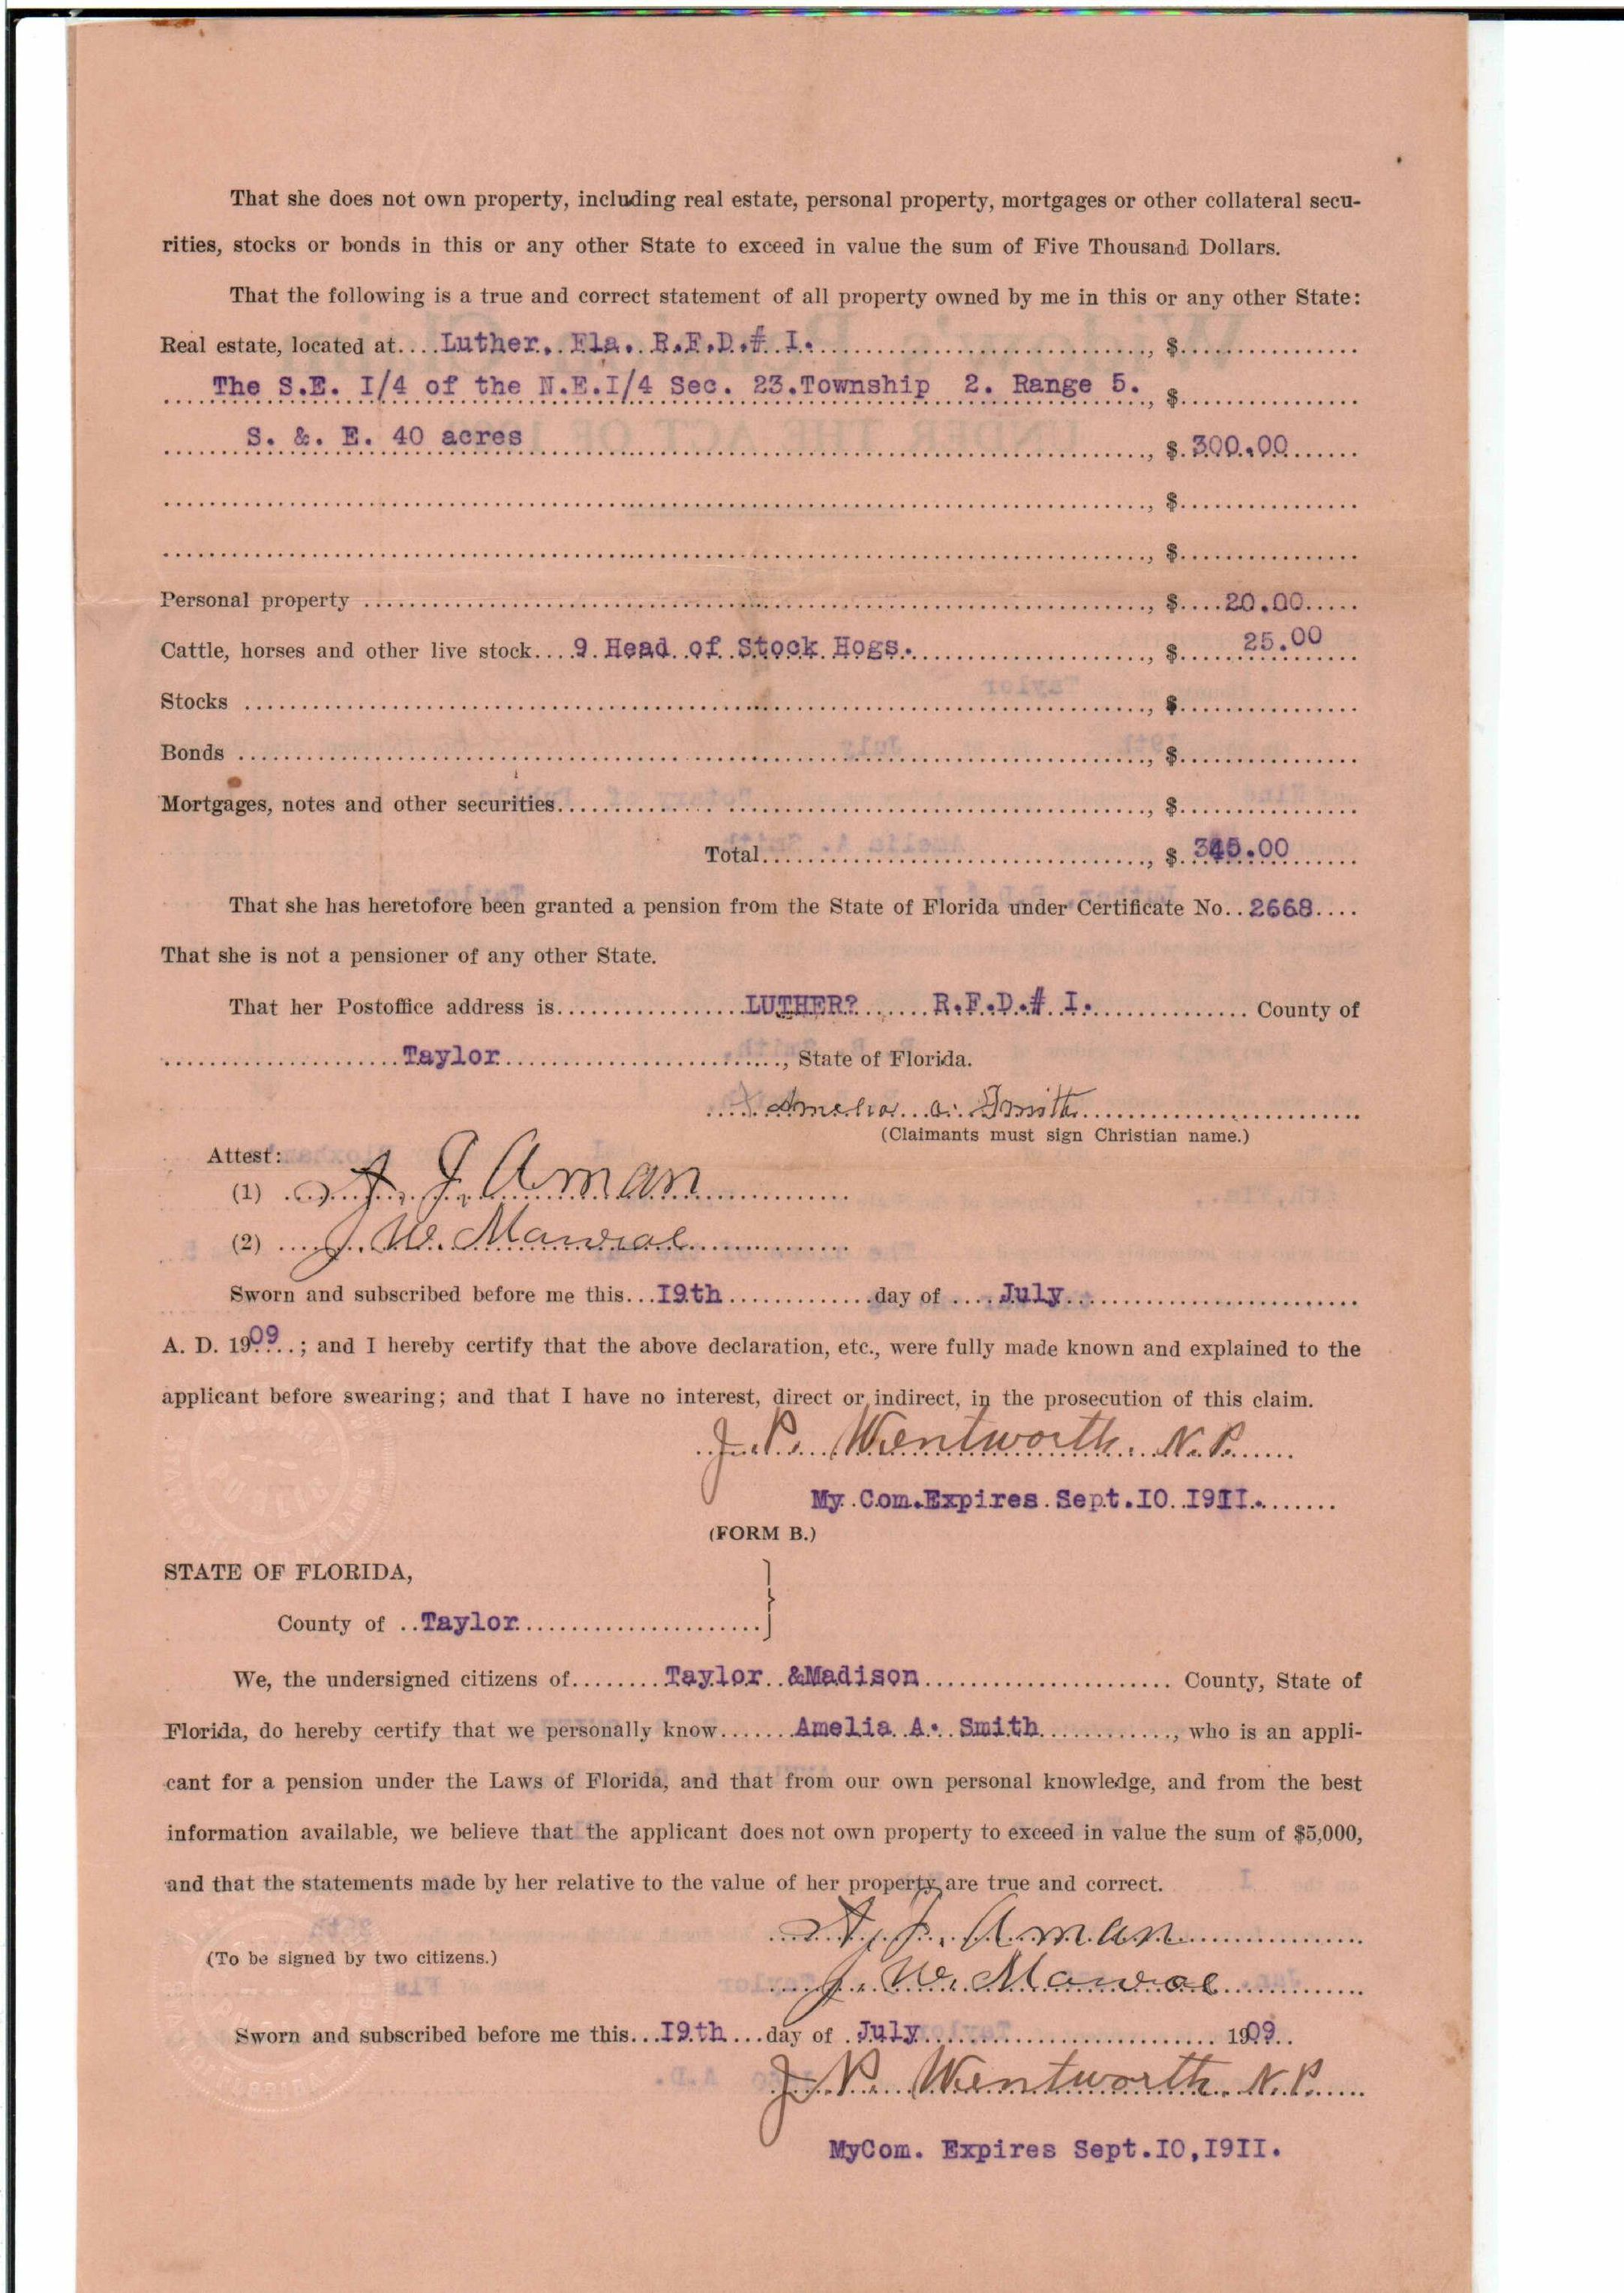 That she does not own property, including real estate, personal property, mortgages or other collateral secu-
rities, stocks or bonds in this or any other State to exceed in value the sum of Five Thousand Dollars.
That the following is a true and correct statement of all property owned by me in this or any other State:
Real estate, located at....Luther, Fla. R.F.D.# I. , $
The S.E. I/4 of the N.E.I/4 Sec. 23.Township 2. Range 5. , $
S. &. E. 40 acres , $ 300.00
, $
, $
Personal property , $ 20.00
Cattle, horses and other live stock....9 Head of Stock Hogs. , $ 25.00
Stocks , $
Bonds , $
Mortgages, notes and other securities. , $
Total , $ 345.00
That she has heretofore been granted a pension from the State of Florida under Certificate No. 2668
That she is not a pensioner of any other State.
That her Postoffice address is LUTHER? R.F.D.# I. County of
Taylor , State of Florida.
Amelia a. Smith
(Claimants must sign Christian name.)
Attest:
(1) A. J. Aman
(2) J. W.
Sworn and subscribed before me this I9th day of July
A. D. 1909 ; and I hereby certify that the above declaration, etc., were fully made known and explained to the
applicant before swearing; and that I have no interest, direct or indirect, in the prosecution of this claim.
J. P. Wentworth. N. P.
My Com.Expires Sept.IO I9II.
(FORM B.)
STATE OF FLORIDA,
County of Taylor
We, the undersigned citizens of Taylor &Madison County, State of
Florida, do hereby certify that we personally know Amelia A. Smith , who is an appli-
cant for a pension under the Laws of Florida, and that from our own personal knowledge, and from the best
information available, we believe that the applicant does not own property to exceed in value the sum of $5,000,
and that the statements made by her relative to the value of her property are true and correct.
A. J. Aman
(To be signed by two citizens.)
J. W.
Sworn and subscribed before me this I9th day of July 1909
J. P. Wentworth. N. P.
MyCom. Expires Sept.IO,I9II.